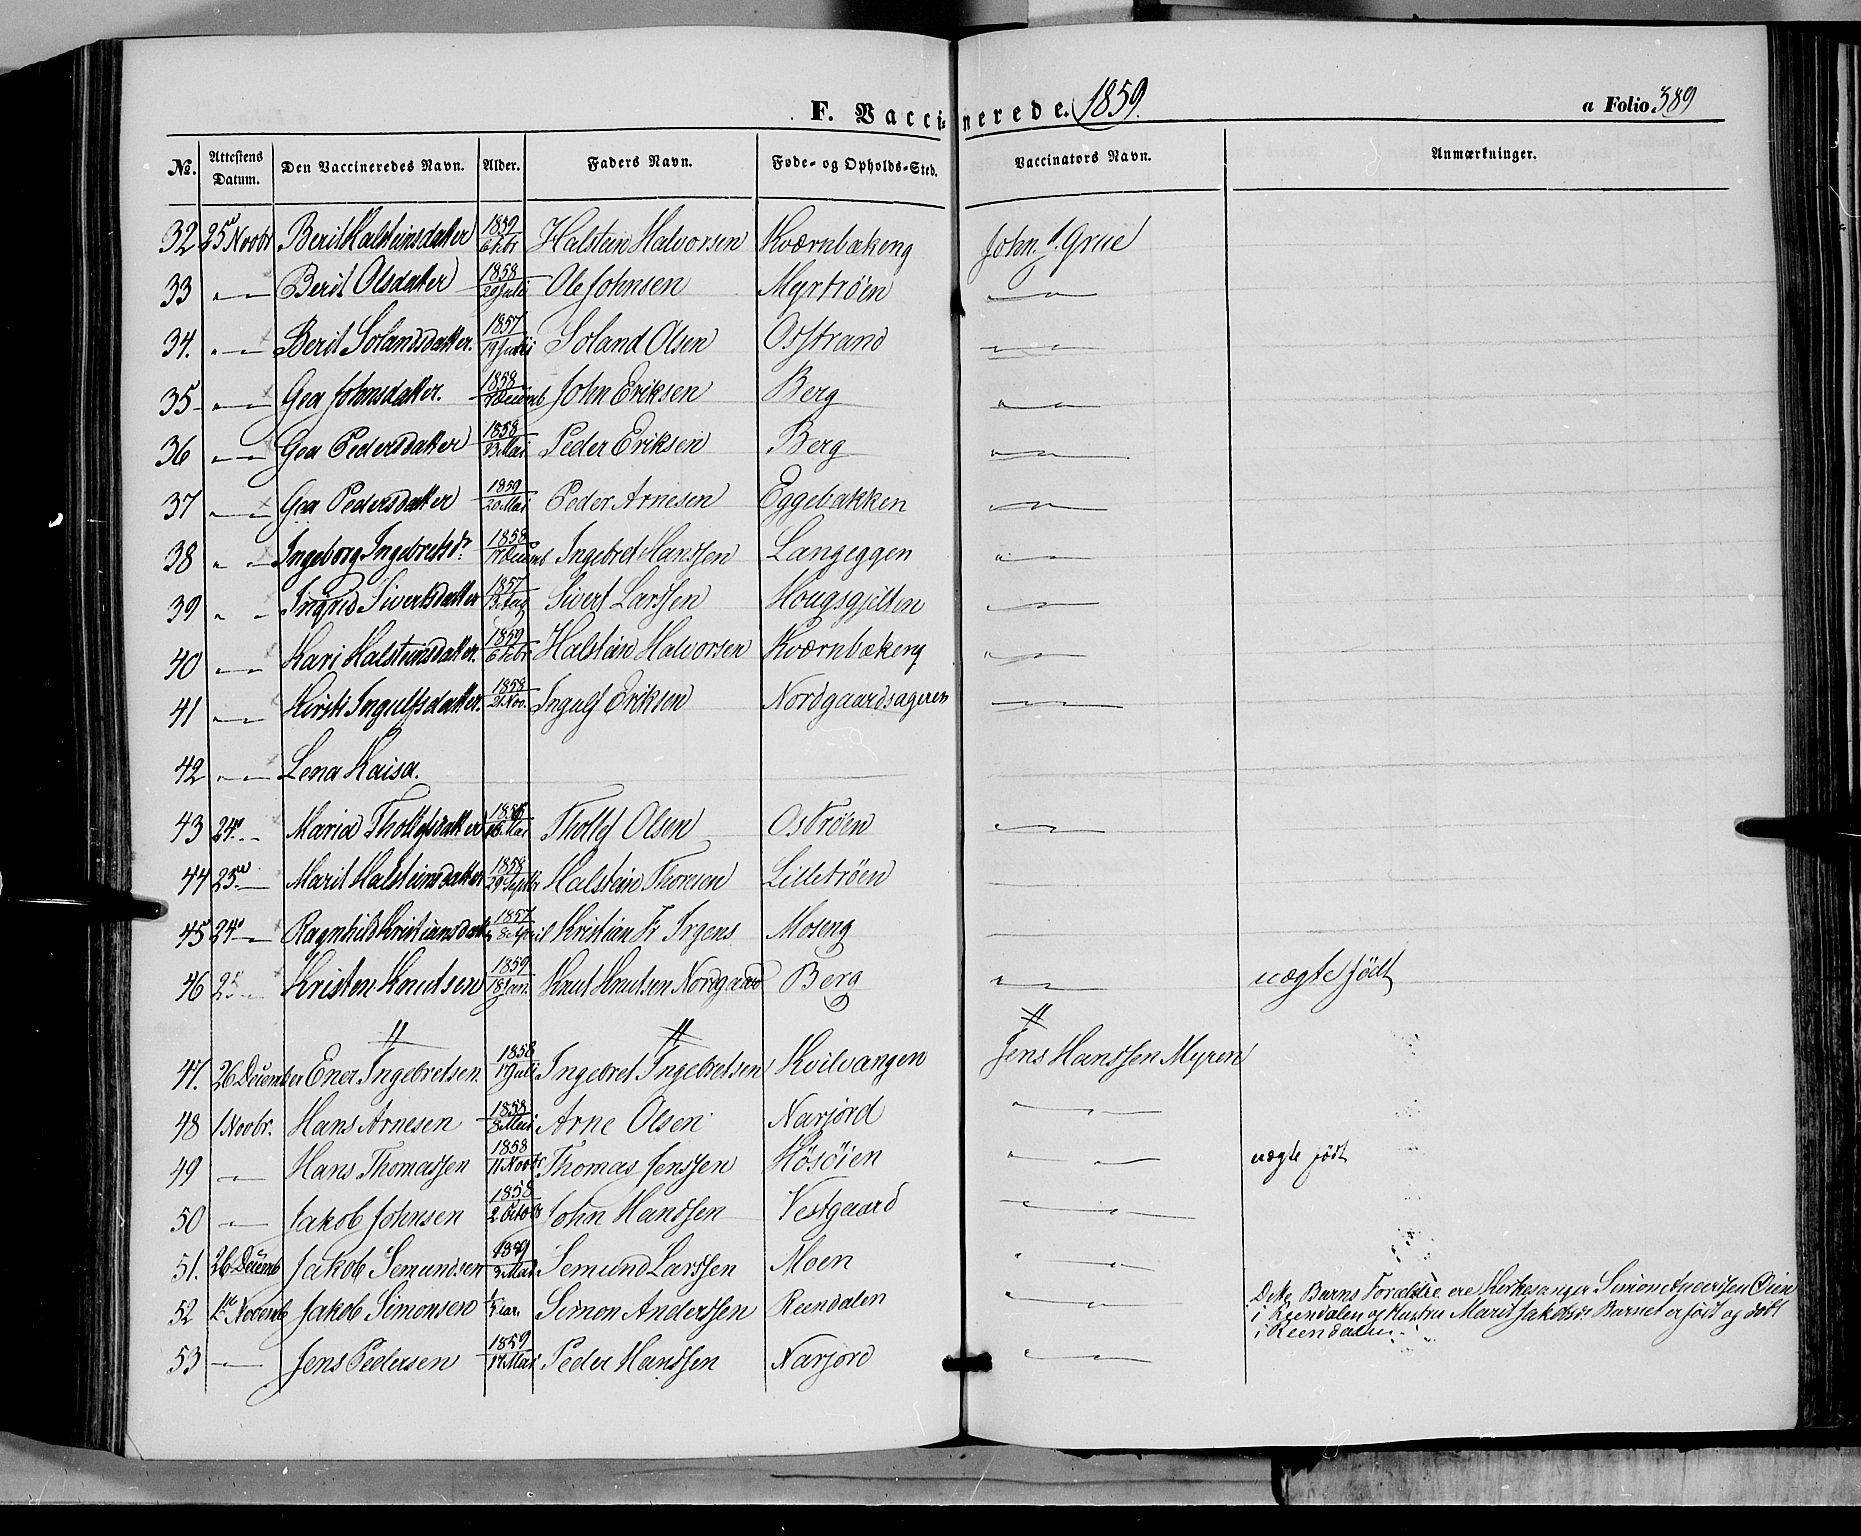 F. Vaccinerede. 1859.
a Folio 389
No. Attestens Datum. Den Vaccineredes Navn. Alder. Faders Navn. Føde- og Opholds-Sted. Vaccinators Navn. Anmærkninger.
32 25de Novbr Berit Halsteinsdatter 1859 6 Febr Halstein Halvorsen Kværnbækeng John J. Grue
33 " — " Berit Olsdatter 1858 20 Juli Ole Johnsen Myrtrøen — " —
34. " — " Berit Solandsdatter. 1857 19 Juli Soland Olsen Osstrand — " —
35 " — " Goa Johnsdatter. 1858 Decemb John Eriksen Berg " — "
36 " — " Goa Pedersdatter 1858 23 Mai Peder Eriksen Berg — " —
37 " — " Goa Pedersdatter 1859 20 Mai Peder Arnesen Eggebakken — " —
38 " — " Ingeborg Ingebretsdr. 1858 Decemb Ingebret Hanssen Langeggen " — "
39 " — " Ingrid Sivertsdatter 1857 Sivert Larssen Hougsgjelten — " —
40 " — " Kari Halsteinsdatter. 1859 6 Febr Halstein Halvorsen Kværnbækeng " — "
41 " — " Kirsti Ingulfsdatter. 1858 21 Nov. Ingulf Eriksen Nordgaardsageren — " —
42 " — " Lena Kaisa.
43 24de — Maria Thollefsdatter Mai Thollef Olsen Ostrøen — " —
44 25de — Marit Halsteinsdatter 1858 29 Septbr Halstein Thoresen Lilletrøen
45 24de — Ragnhild Kristiansdatt 1857 8 April Kristian Fr Irgens Moseng
46 25 — Kristen Knutsen 1859 18 Jan. Knut Knutsen Nordgaard Berg " — " uægte født
47. 26 December Ener Ingebretsen. 1858 17 Juli Ingebret Ingebretsen Kvilvangen Jens Hanssen Myren
48 1 Novbr. Hans Arnesen 1858 8 Mai Arne Olsen Narjord " — "
49 " — Hans Thomassen 1858 11 Novbr Thomas Jenssen Høsøien " — " uægte født
50 " — Jakob Johnsen 1858 2 Octobr John Hanssen Vestgaard — " —
51. 26 Decemb Jakob Semundsen 1859 Mai Semund Larssen Moen " — "
52 1ste Novemb Jakob Simonsen Simon Anderssen Reendalen " — " Dette Barns Forældre ere Kirkesanger Simon Anderssen Øien
i Reendalen og Hustru Marit Jakobsd. Barnet er født og døbt
i Reendalen.
53 " — Jens Pedersen 1859 17 Mai Peder Hanssen Narjord " — "